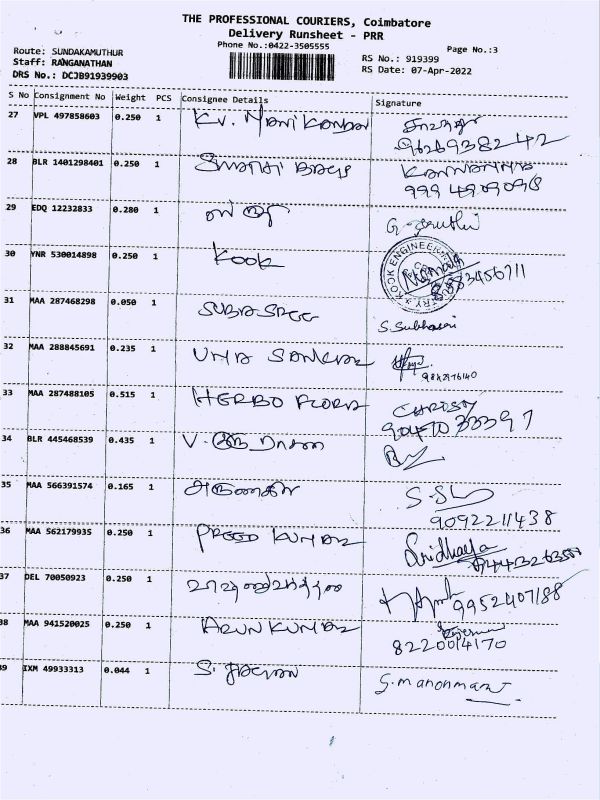 THE PROFESSIONAL COURIERS, Coimbatore
Delivery Runsheet - PRR
Phone No.:0422-3505555
Page No.:3
Route: SUNDAKAMUTHUR
Staff: RANGANATHAN
DRS No.: DCJB91939903
RS No.: 919399
RS Date: 07-Apr-2022
S No Consignment No Weight PCS Consignee Details Signature
27 VPL 497858603 0.250 1 KV. Manikandan
9626938242
28 BLR 1401298401 0.250 1 SWATHI BAGS
29 EDQ 12232833 0.280 1
30 YNR 530014898 0.250 1 KOOK
KOOK ENGINEER
8883456711
31 MAA 287468298 0.050 1 SUBASREE S. Subhasri
32 MAA 288845691 0.235 1 UMA SANKAR
33 MAA 287488105 0.515 1 HERBO FLORA
34 BLR 445468539 0.435 1
35 MAA 566391574 0.165 1
9092211438
36 MAA 562179935 0.250 1 PREED KUMAR Sridhara
37 DEL 70050923 0.250 1 9952407188
38 MAA 941520025 0.250 1 ARUN KUMAR
8220014170
39 IXM 49933313 0.044 1 S. JAGAN S. manonmani